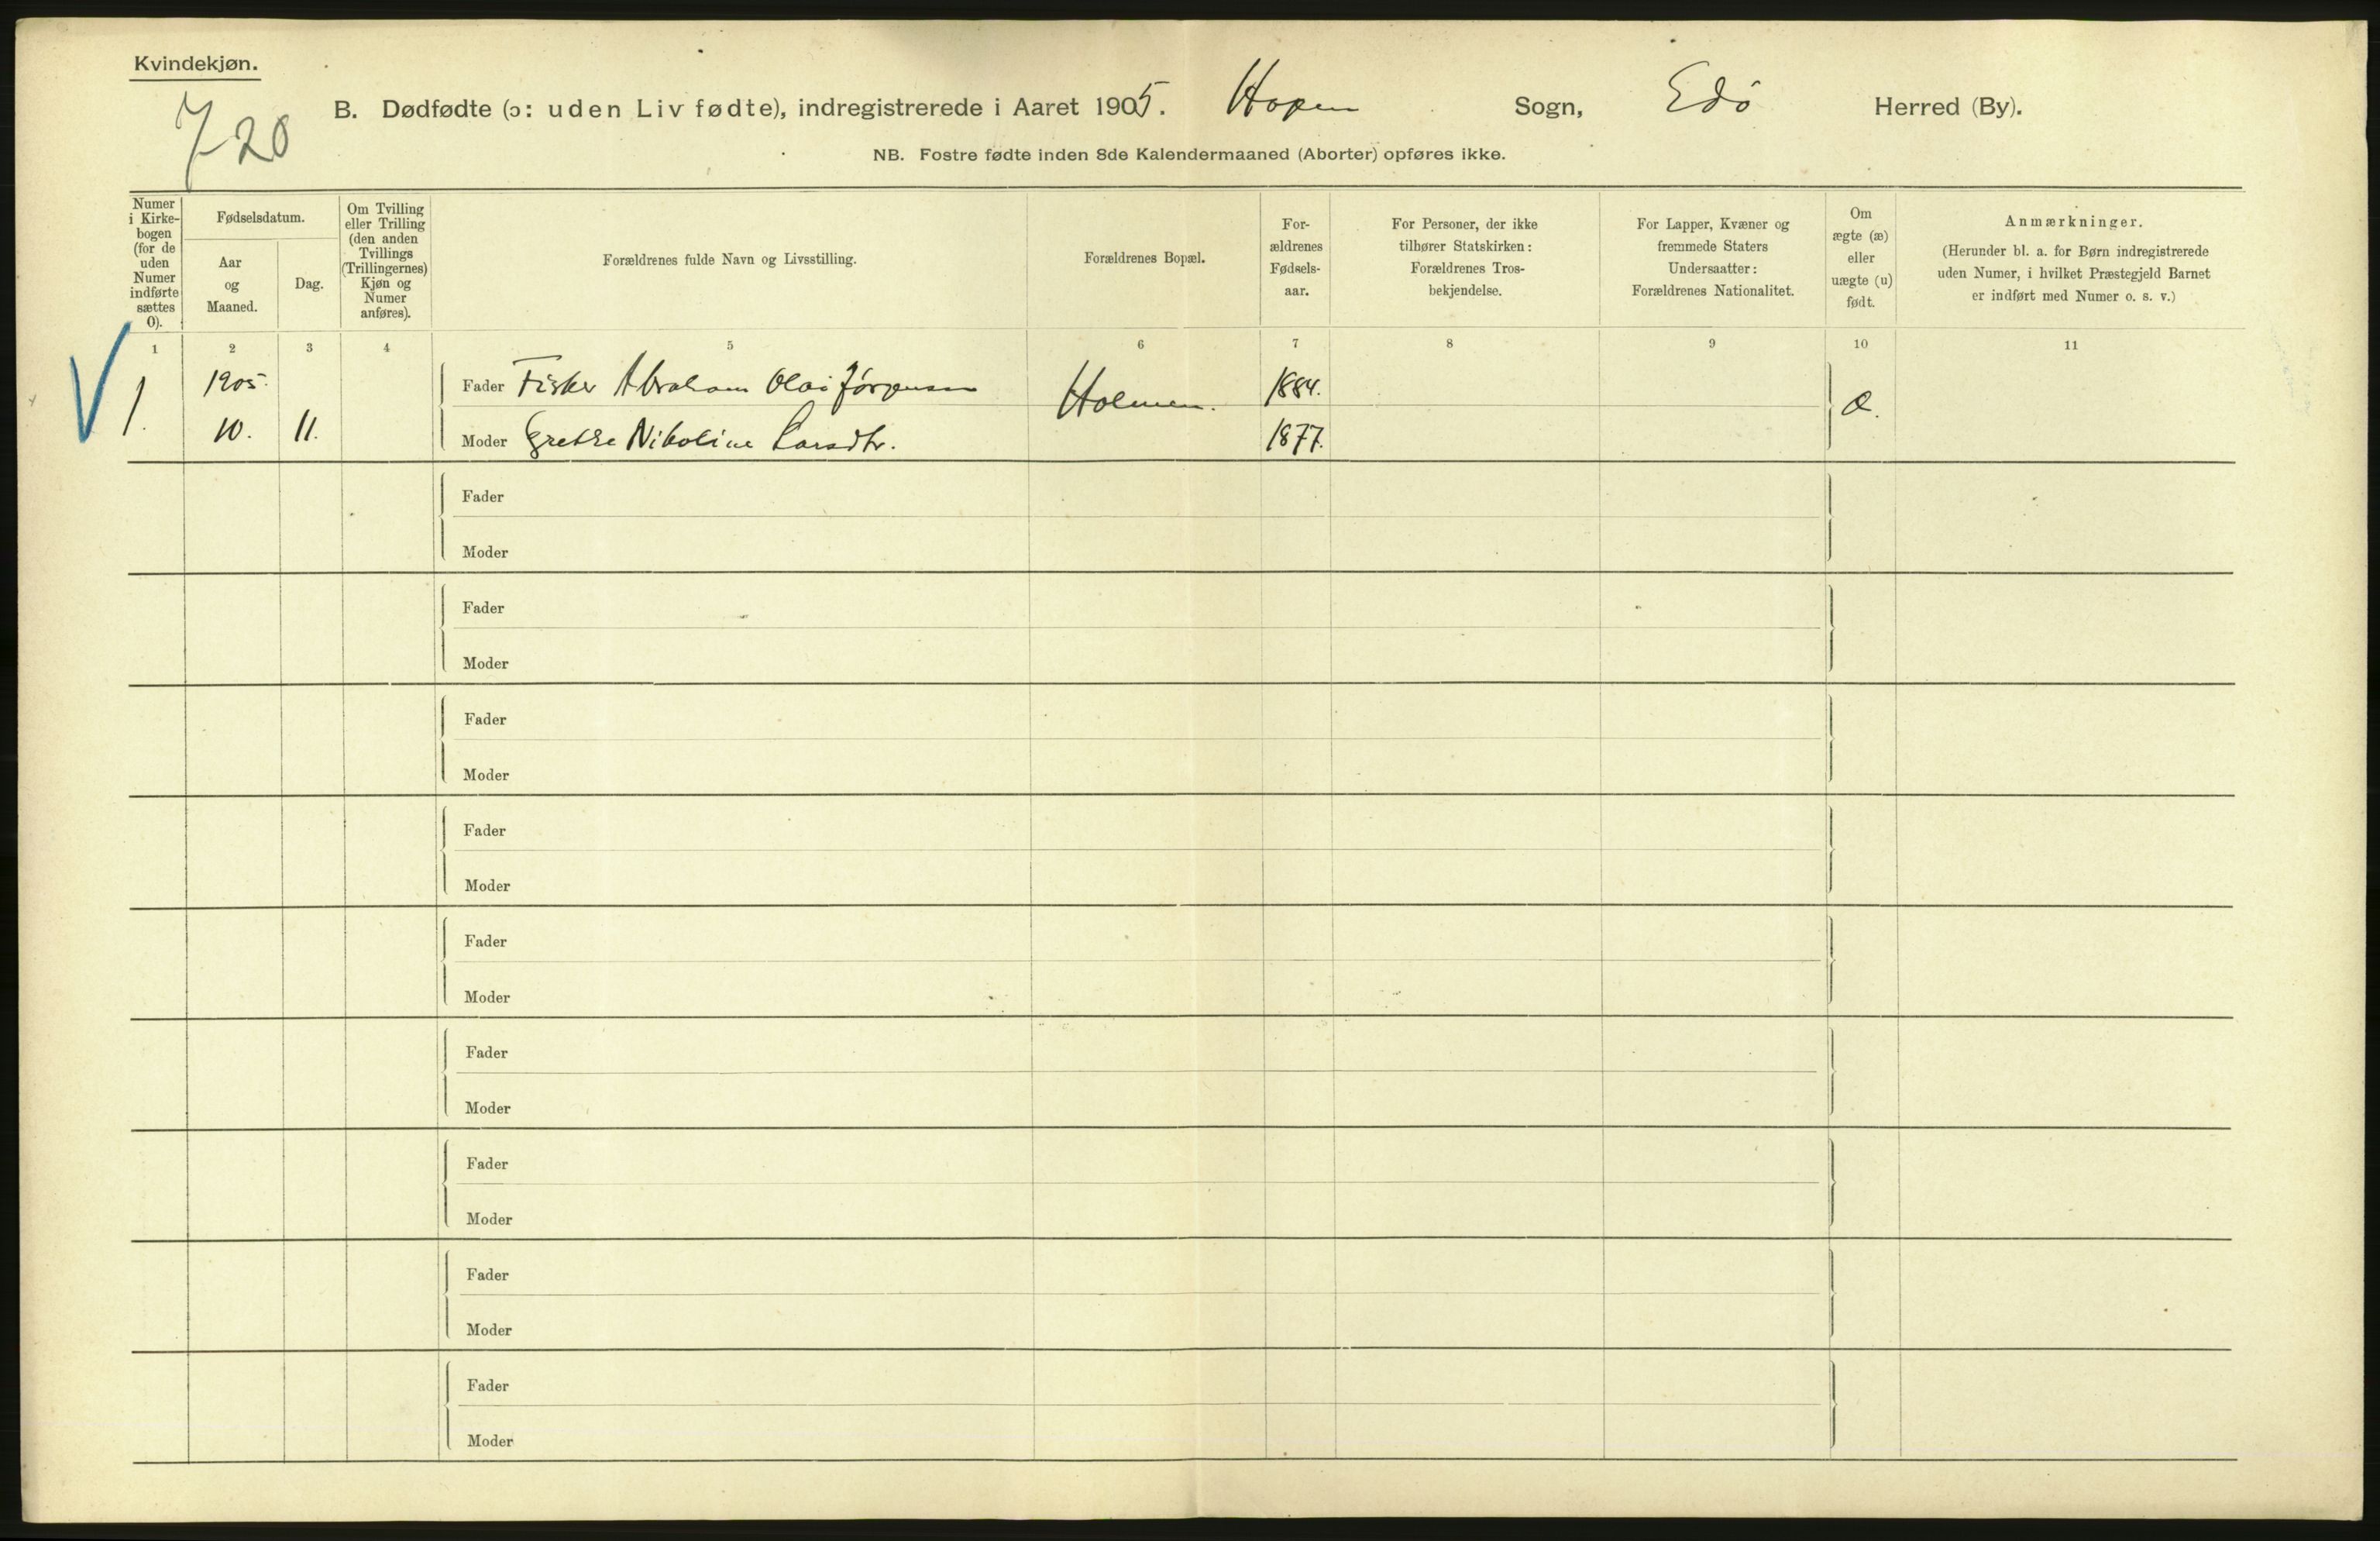 Kvindekjøn.
720
B. Dødfødte (ɔ: uden Liv fødte), indregistrerede i Aaret 1905. Hopen Sogn, Edø Herred (By).
NB. Fostre fødte inden 8de Kalendermaaned (Aborter) opføres ikke.
Numer
i Kirke-
bogen
(for de
uden
Numer
indførte
sættes
0).
Fødselsdatum.
Aar
og
Maaned.
Dag.
Om Tvilling
eller Trilling
(den anden
Tvillings
(Trillingernes)
Kjøn og
Numer
anføres).
Forældrenes fulde Navn og Livsstilling.
Forældrenes Bopæl.
For-
ældrenes
Fødsels-
aar.
For Personer, der ikke
tilhører Statskirken:
Forældrenes Tros-
bekjendelse.
For Lapper, Kvæner og
fremmede Staters
Undersaatter:
Forældrenes Nationalitet.
Om
ægte (æ)
eller
uægte (u)
født.
Anmærkninger.
(Herunder bl. a. for Børn indregistrerede
uden Numer, i hvilket Præstegjeld Barnet
er indført med Numer o. s. v.)
1 2 3 4 5 6 7 8 9 10 11
1. 1905. 10. 11.
Fader Fisker Abraham Olai Jörgensen
Moder Grethe Nikoline Larsdtr.
Holmen.
1884.
1877.
æ.
Fader
Moder
Fader
Moder
Fader
Moder
Fader
Moder
Fader
Moder
Fader
Moder
Fader
Moder
Fader
Moder
Fader
Moder